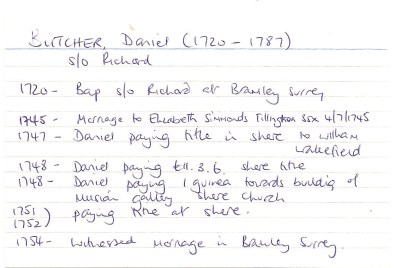 BUTCHER, Daniel (1720 - 1787)
s/o Richard
1720 - Bap s/o Richard at Bramley Surrey
1745 - Marriage to Elizabeth Simmonds Tillington SSX 4/7/1745
1747 - Daniel paying title in Shere to William
Wakefield
1748 - Daniel paying £11.3.6. Shere title
1748 - Daniel paying 1 guinea towards building of
gallery Shere Church
1751
1752) paying title at Shere.
1754 - Witnessed marriage in Bramley Surrey.